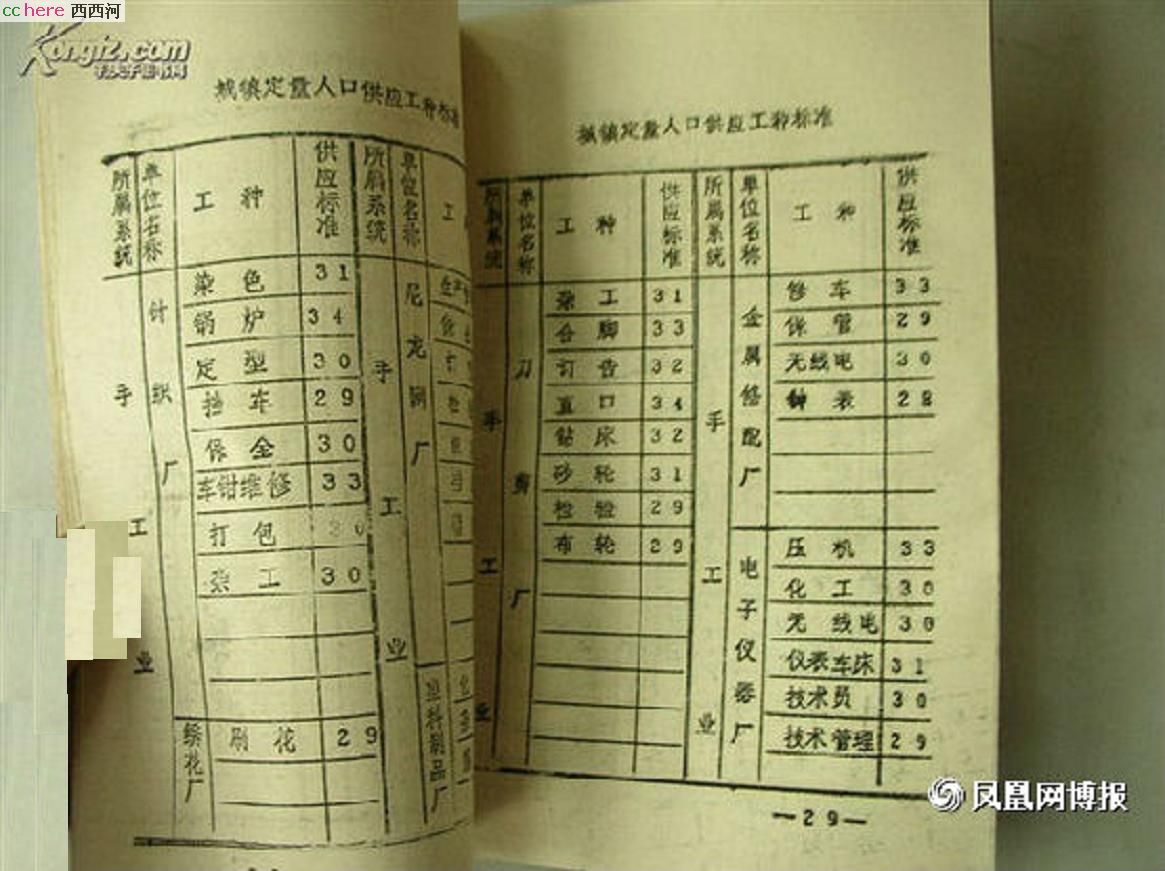 cchere 西西河
Kongfz.com
孔夫子旧书网
城镇定量人口供应工种标准
所属系统 单位名称 工种 供应标准 所属系统 单位名称 工
手工业 针织厂 染色 31 手工业 尼龙网厂
锅炉 34
定型 30
挡车 29
保全 30
车钳维修 33
打包 30
杂工 30
绣花厂 刷花 29 塑料制品厂
城镇定量人口供应工种标准
所属系统 单位名称 工种 供应标准 所属系统 单位名称 工种 供应标准
手工业 刀剪厂 杂工 31 手工业 金属修配厂 修车 33
合脚 33 保管 29
32 无线电 30
直口 34 钟表 28
钻床 32
砂轮 31
检验 29
布轮 29 电子仪器厂 压机 33
化工 30
无线电 30
仪表车床 31
技术员 30
技术管理 29
—29—
凤凰网博报